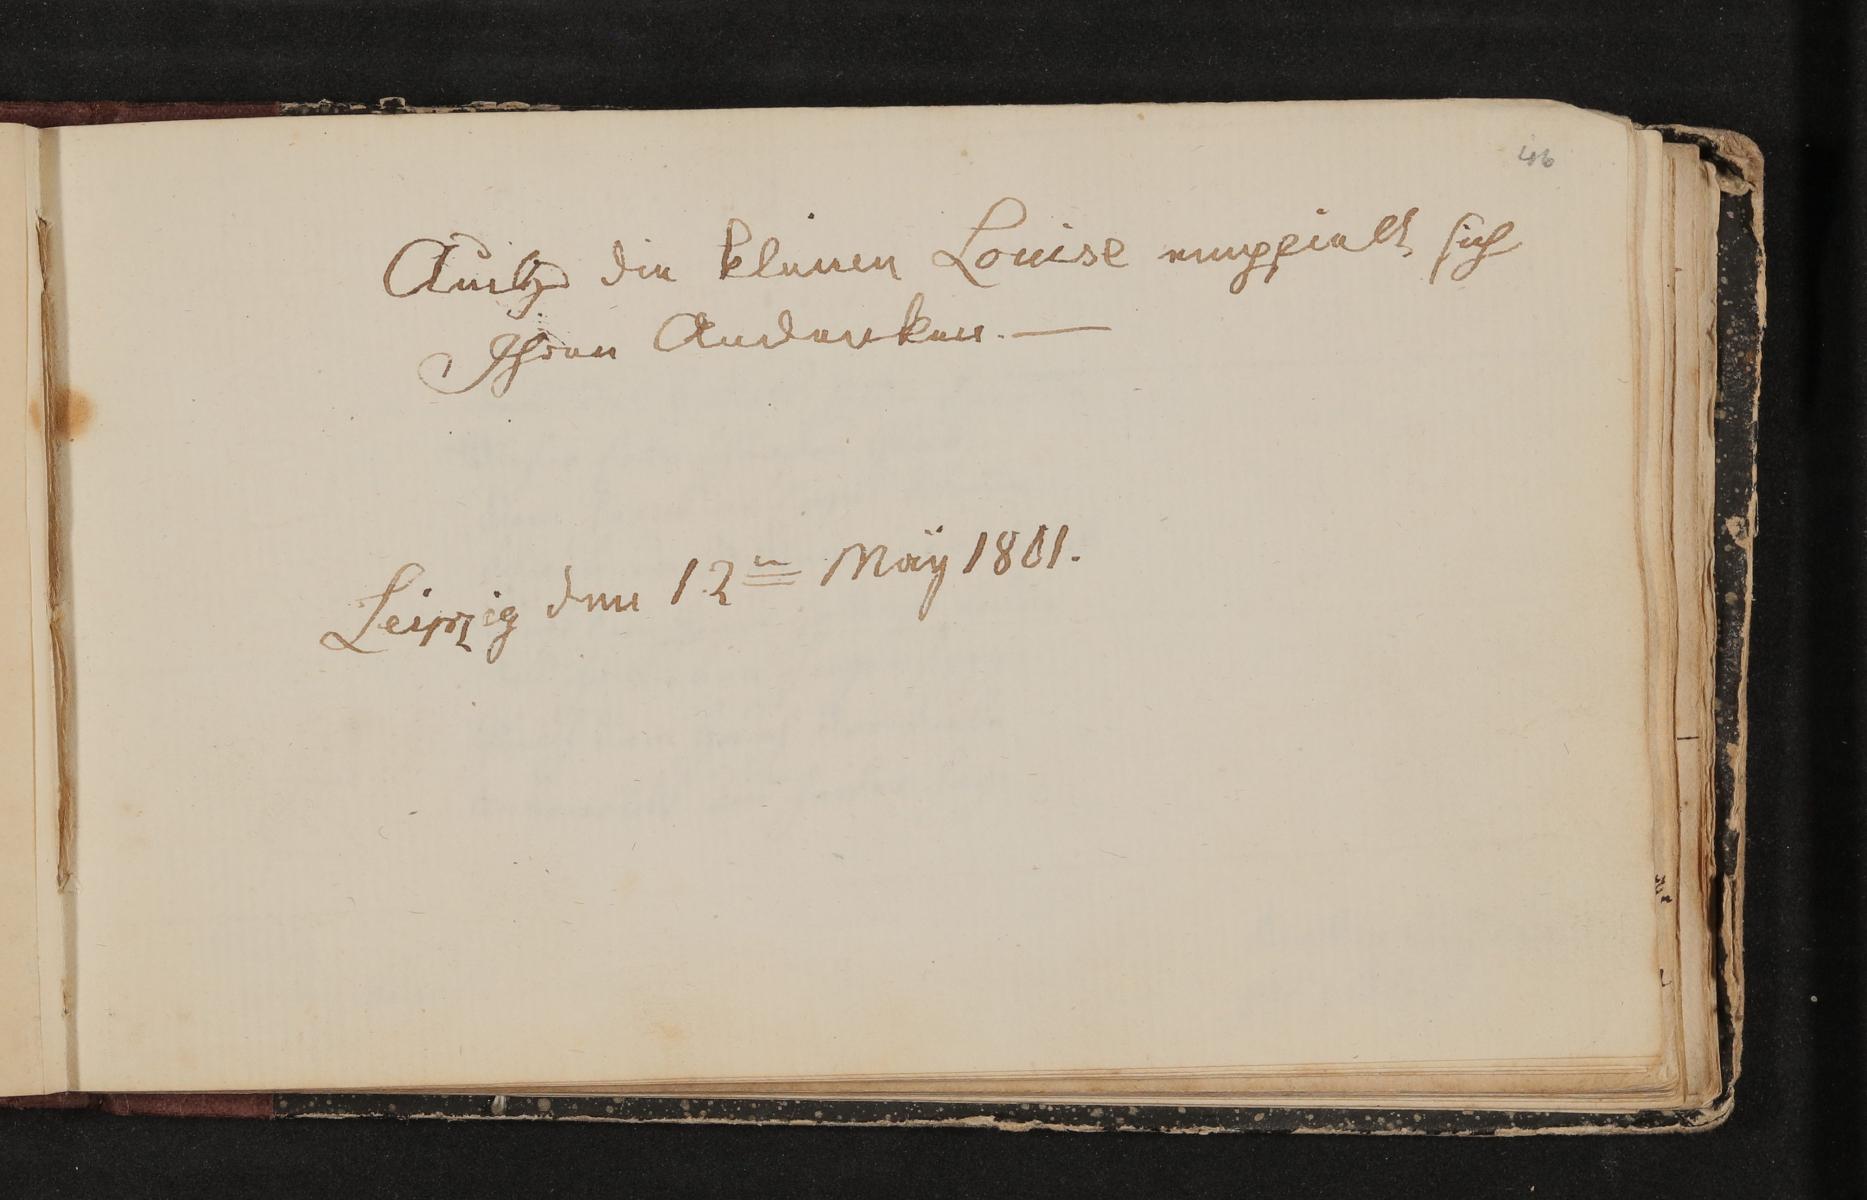 46
Auch die kleinen Louise empfielt sich
Ihren Andenken. —
Leipzig den 12n May 1801.